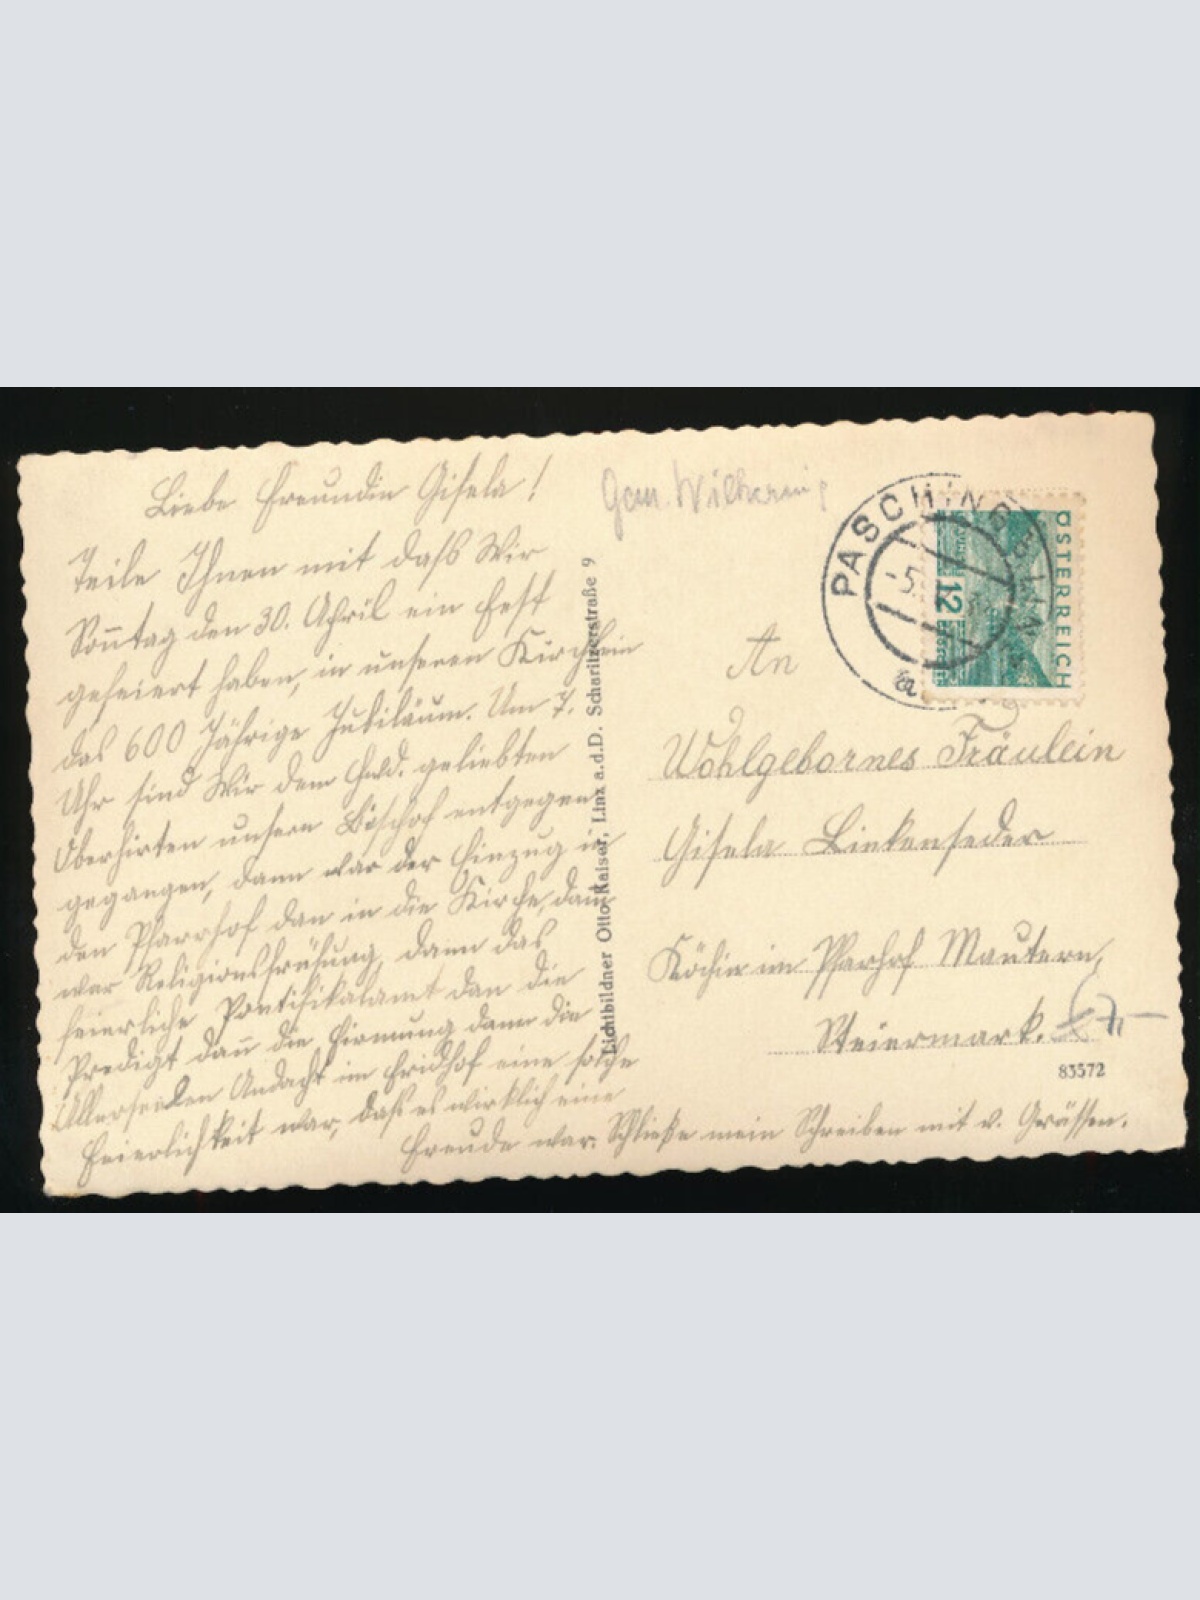 Liebe Freundin Gisela!
Teile Ihnen mit daß Wir
Son̄tag den 30. April ein Fest
gefeiert haben, in unseren Kirchlein
das 600 Jährige Jubiläum. Um 7.
Uhr sind Wir dem Hwd. geliebten
Oberhirten unsern Bischof entgegen
gegangen, dann war der Einzug in
den Pfarrhof dan in die Kirche, dann
war Religionsprüfung, dann das
feierliche Pontifikalamt dan die
Predigt dan̄ die Firmung dann die
Allerseelen Andacht im Fridhof eine solche
Feierlichkeit war, daß es wirklich eine
Freude war. Schließe mein Schreiben mit v. Grüssen.
Lichtbildner Otto Kaiser, Linz a.d.D. Scharitzerstraße 9
Gem. Wilhering
PASCHING B. LINZ
-5.
a
12
ÖSTERREICH
An
Wohlgebornes Fräulein
Gisela Linkenseder
Köchin im Pfarhof Mautern,
Steiermark.
83572